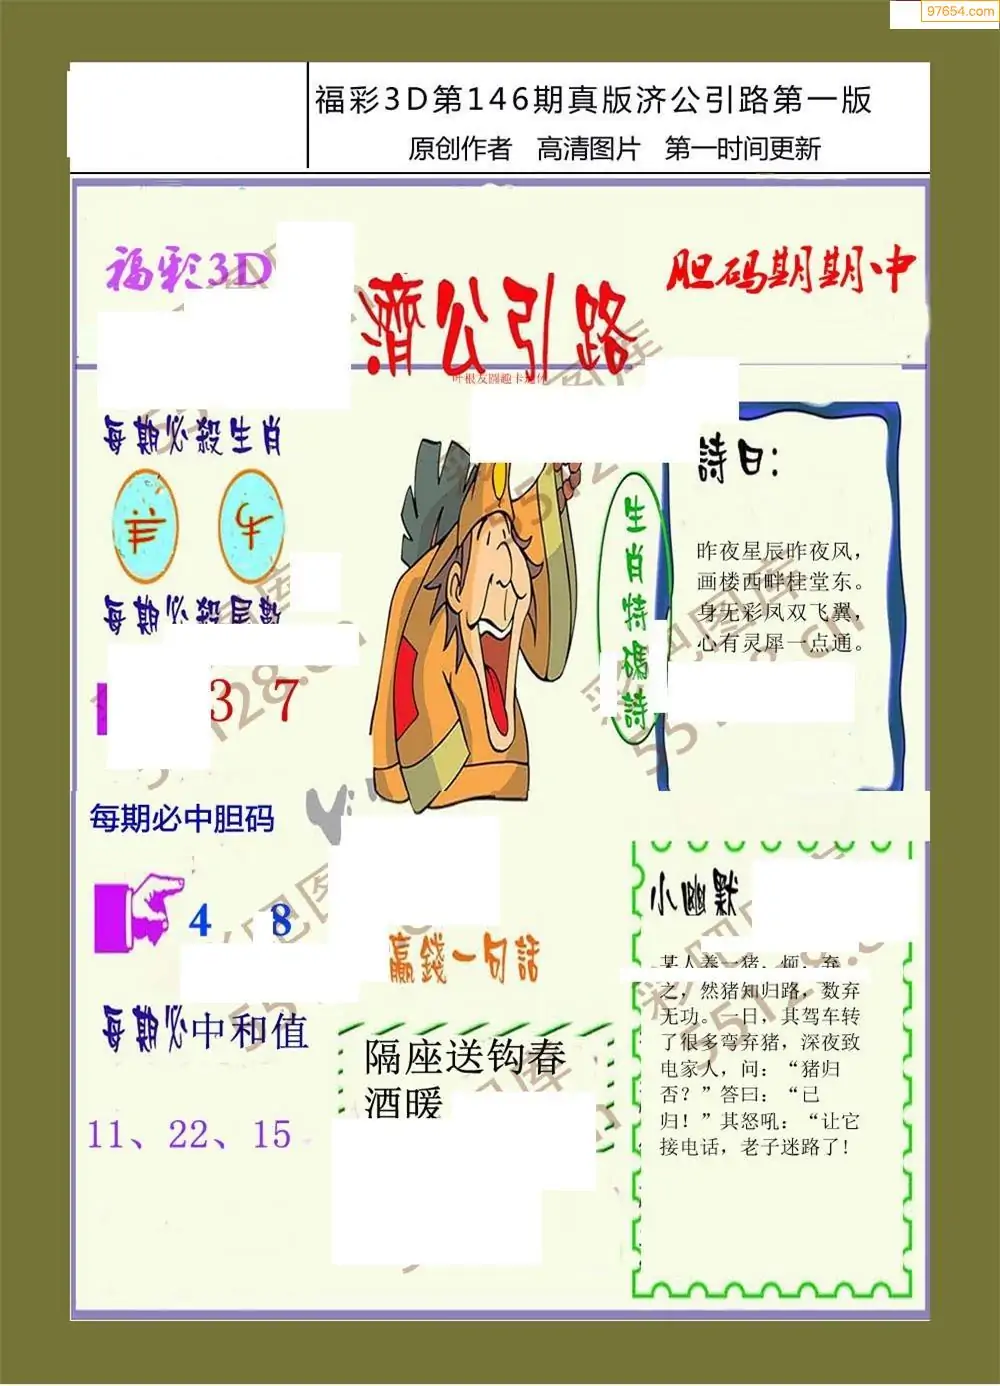 97654.com
福彩3D第146期真版济公引路第一版
原创作者 高清图片 第一时间更新
福彩3D
胆码期期中
濟公引路
每期必殺生肖
羊 牛
每期必殺尾數
3 7
每期必中胆码
4 8
每期必中和值
11、22、15
生肖特碼詩
詩曰:
昨夜星辰昨夜风，
画楼西畔桂堂东。
身无彩凤双飞翼，
心有灵犀一点通。
赢錢一句話
隔座送钩春
酒暖
小幽默
某人养一猪，烦，弃
之，然猪知归路，数弃
无功。一日，其驾车转
了很多弯弃猪，深夜致
电家人，问：“猪归
否？”答曰：“已
归！”其怒吼：“让它
接电话，老子迷路了!